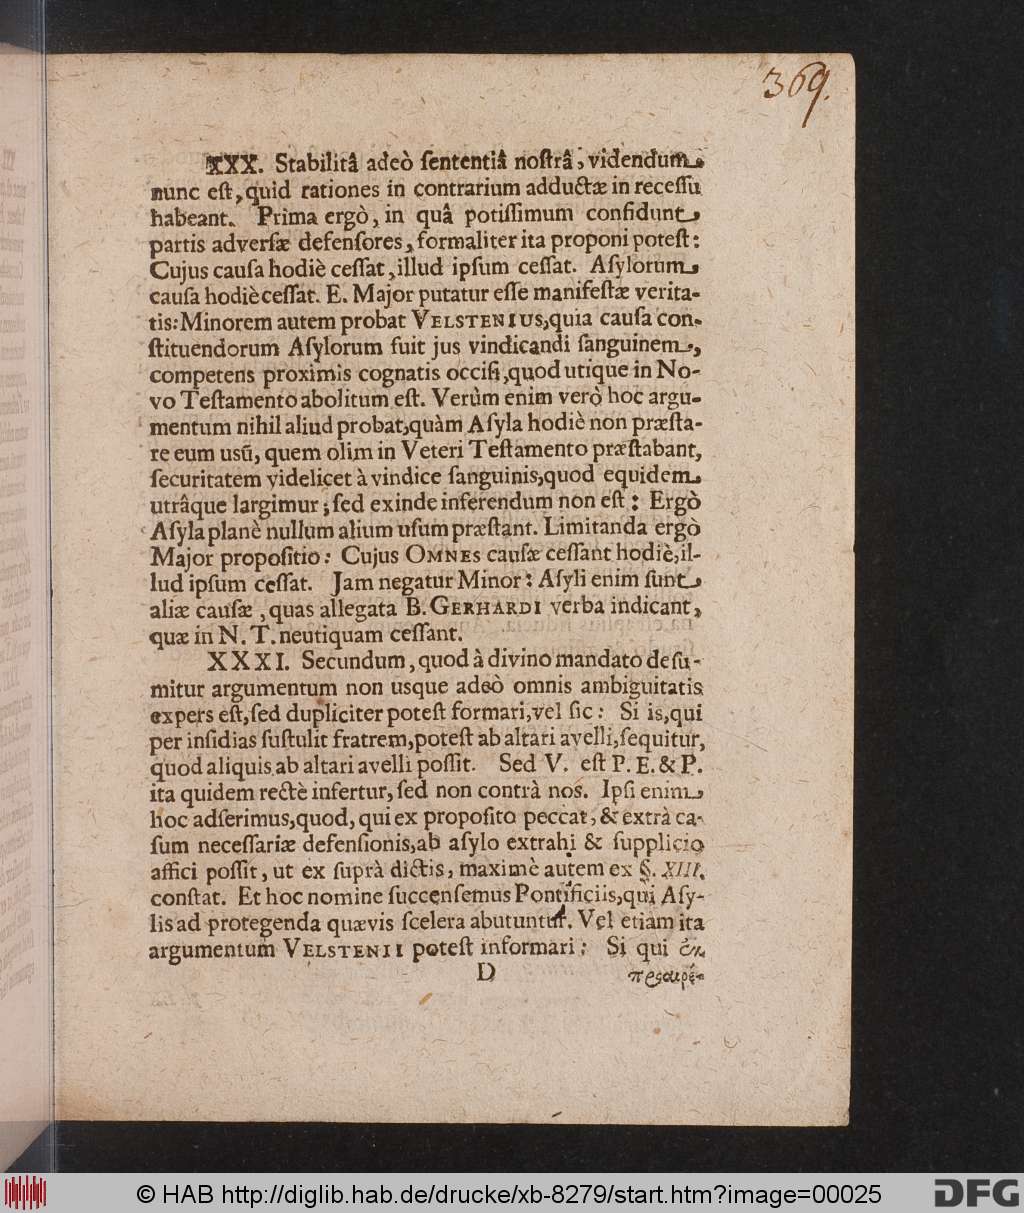 369.
XXX. Stabilitâ adeò ſententiâ noſtrâ, videndum
nunc eſt, quid rationes in contrarium adductæ in receſſu
habeant. Prima ergò, in quâ potiſſimum confidunt
partis adverſæ defenſores, formaliter ita proponi poteſt:
Cujus cauſa hodiè ceſſat, illud ipſum ceſſat. Aſylorum
cauſa hodiè ceſſat. E. Major putatur eſſe manifeſtæ verita-
tis: Minorem autem probat VELSTENIUS, quia cauſa con-
ſtituendorum Aſylorum fuit jus vindicandi ſanguinem,
competens proximis cognatis occiſi, quod utique in No-
vo Teſtamento abolitum eſt. Verùm enim verò hoc argu-
mentum nihil aliud probat, quàm Aſyla hodiè non præſta-
re eum usū, quem olim in Veteri Teſtamento præſtabant,
ſecuritatem videlicet à vindice ſanguinis, quod equidem
utrâque largimur; ſed exinde inferendum non eſt: Ergò
Aſyla planè nullum alium uſum præſtant. Limitanda ergò
Major propoſitio: Cujus OMNES cauſæ ceſſant hodiè, il-
lud ipſum ceſſat. Jam negatur Minor: Aſyli enim ſunt
aliæ cauſæ, quas allegata B. GERHARDI verba indicant,
quæ in N. T. neutiquam ceſſant.
XXXI. Secundum, quod à divino mandato deſu-
mitur argumentum non usque adeò omnis ambiguitatis
expers eſt, ſed dupliciter poteſt formari, vel ſic: Si is, qui
per inſidias ſuſtulit fratrem, poteſt ab altari avelli, ſequitur,
quod aliquis ab altari avelli poſſit. Sed V. eſt P. E. & P.
ita quidem rectè infertur, ſed non contrà nos. Ipſi enim
hoc adſerimus, quod, qui ex propoſito peccat, & extrà ca-
ſum neceſſariæ defenſionis, ab aſylo extrahi & ſupplicio
affici poſſit, ut ex ſuprà dictis, maximè autem ex §. XIII.
conſtat. Et hoc nomine ſuccenſemus Pontificiis, qui Aſy-
lis ad protegenda quævis ſcelera abutuntur. Vel etiam ita
argumentum VELSTENII poteſt informari: Si qui ἐκ
D προαιρέ-
© HAB http://diglib.hab.de/drucke/xb-8279/start.htm?image=00025 DFG